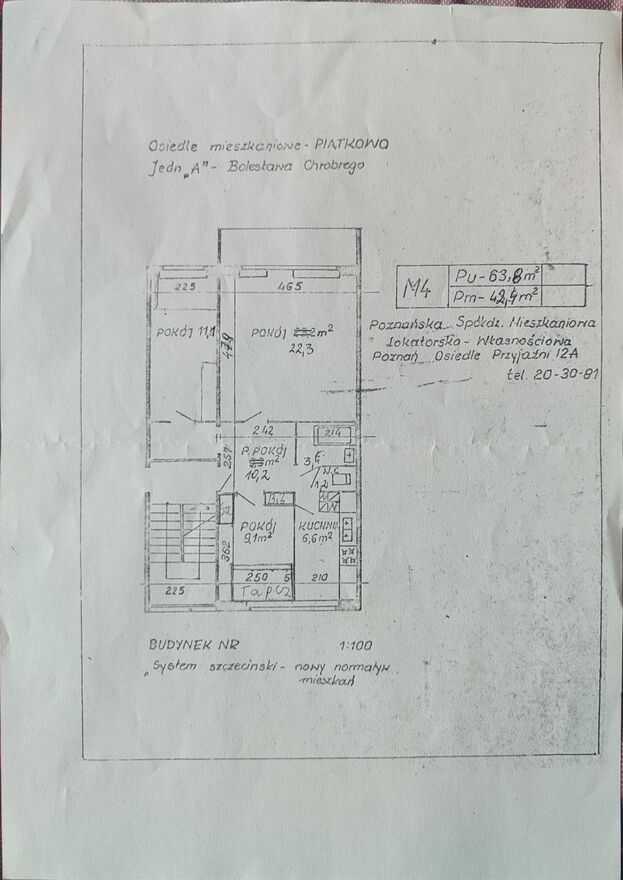 Osiedle mieszkaniowe - PIĄTKOWO
Jedn. „A" - Bolesława Chrobrego
M4
Pu - 63,8 m²
Pm - 42,4 m²
Poznańska Spółdz. Mieszkaniowa
Lokatorsko - Własnościowa
Poznań Osiedle Przyjaźni 12A
tel. 20-30-81
225
465
POKÓJ 11,1
479
POKÓJ m²
22,3
242
214
P. POKÓJ
m²
10,2
257
W.C
1,2
POKÓJ
9,1m²
KUCHNIA
6,6m²
362
250
5
210
Tapcz
225
BUDYNEK NR 1:100
„System szczeciński - nowy normatyw
mieszkań